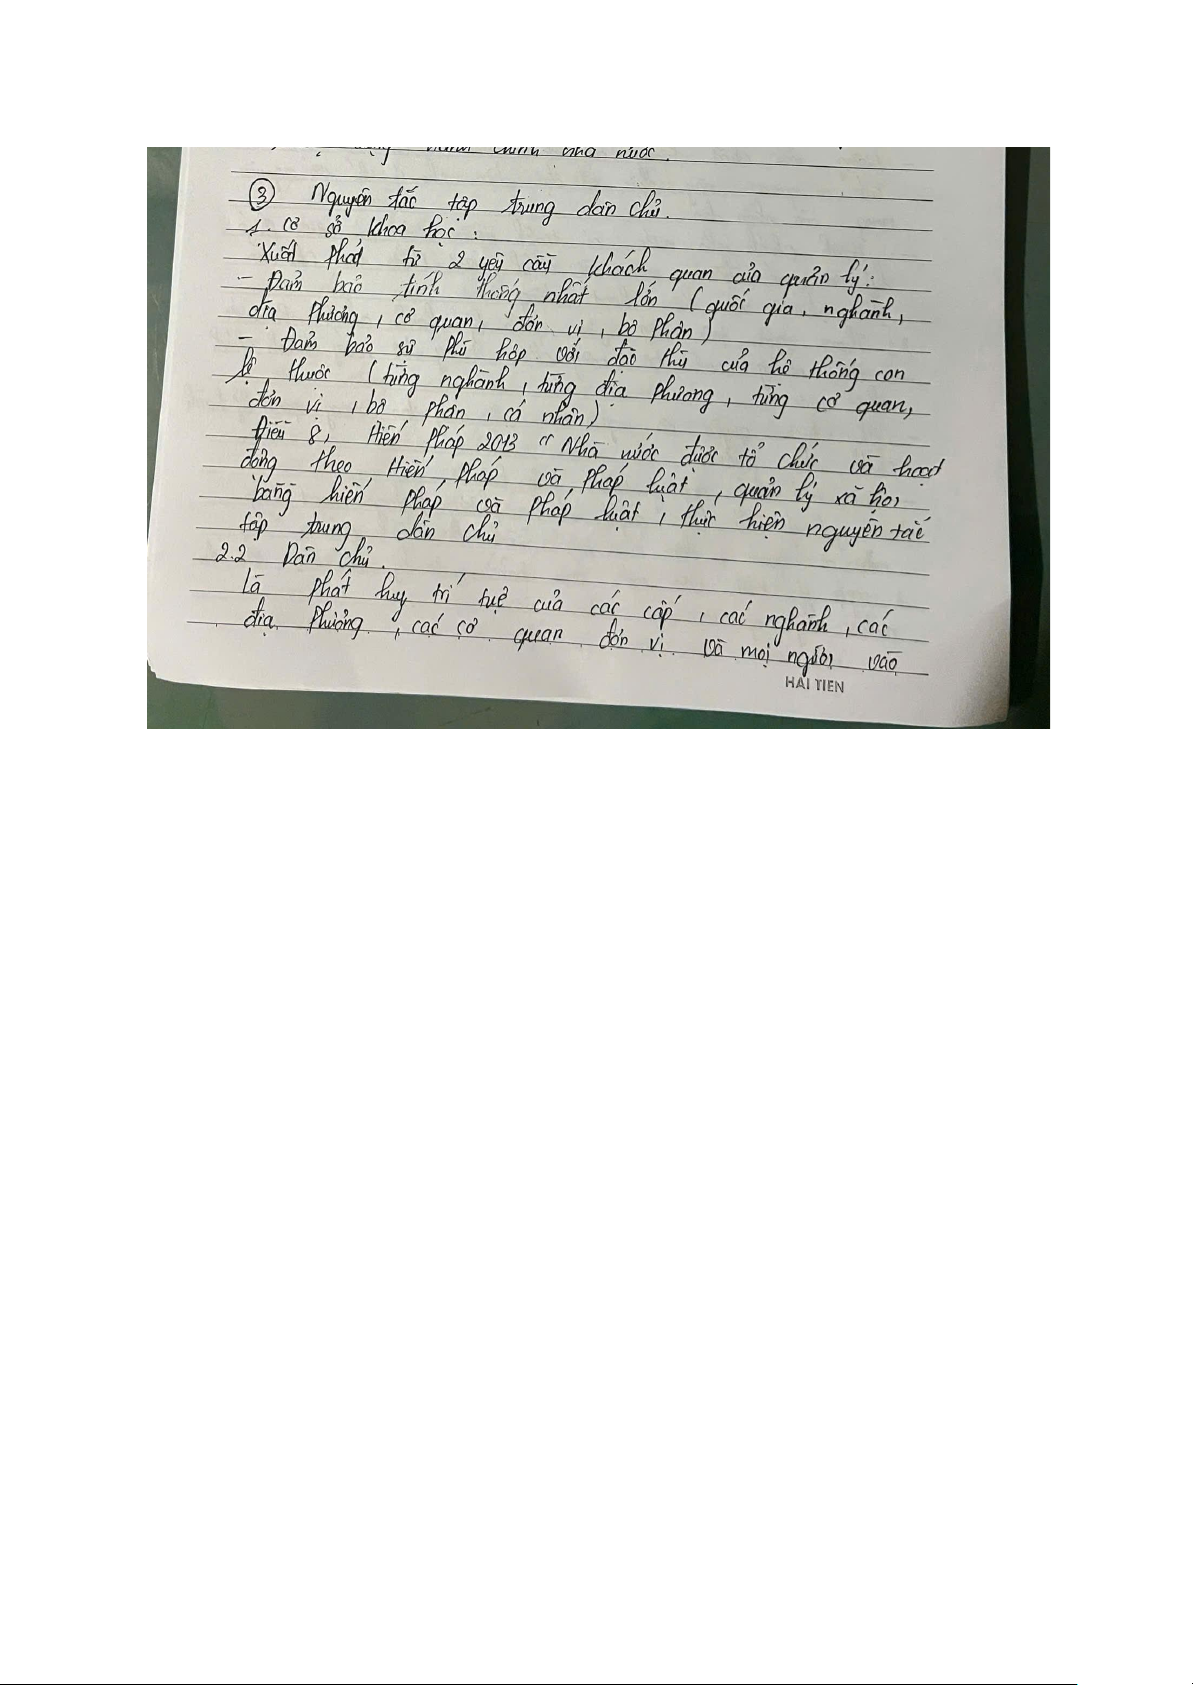 hành chính nhà nước.
③ Nguyên tắc tập trung dân chủ.
1. Cơ sở khoa học :
Xuất phát từ 2 yêu cầu khách quan của quản lý :
- Đảm bảo tính thống nhất lớn ( quốc gia, nghành,
địa phương, cơ quan, đơn vị, bộ phận )
- Đảm bảo sự phù hợp với đặc thù của hệ thống con
lệ thuộc ( từng nghành, từng địa phương, từng cơ quan,
đơn vị, bộ phận, cá nhân )
Điều 8, Hiến pháp 2013 " Nhà nước được tổ chức và hoạt
động theo Hiến pháp và pháp luật, quản lý xã hội
bằng hiến pháp và pháp luật, thực hiện nguyên tắc
tập trung dân chủ
2.2 Dân chủ.
Là phát huy trí tuệ của các cấp, các nghành, các
địa phương, các cơ quan đơn vị và mọi người vào
HẢI TIẾN